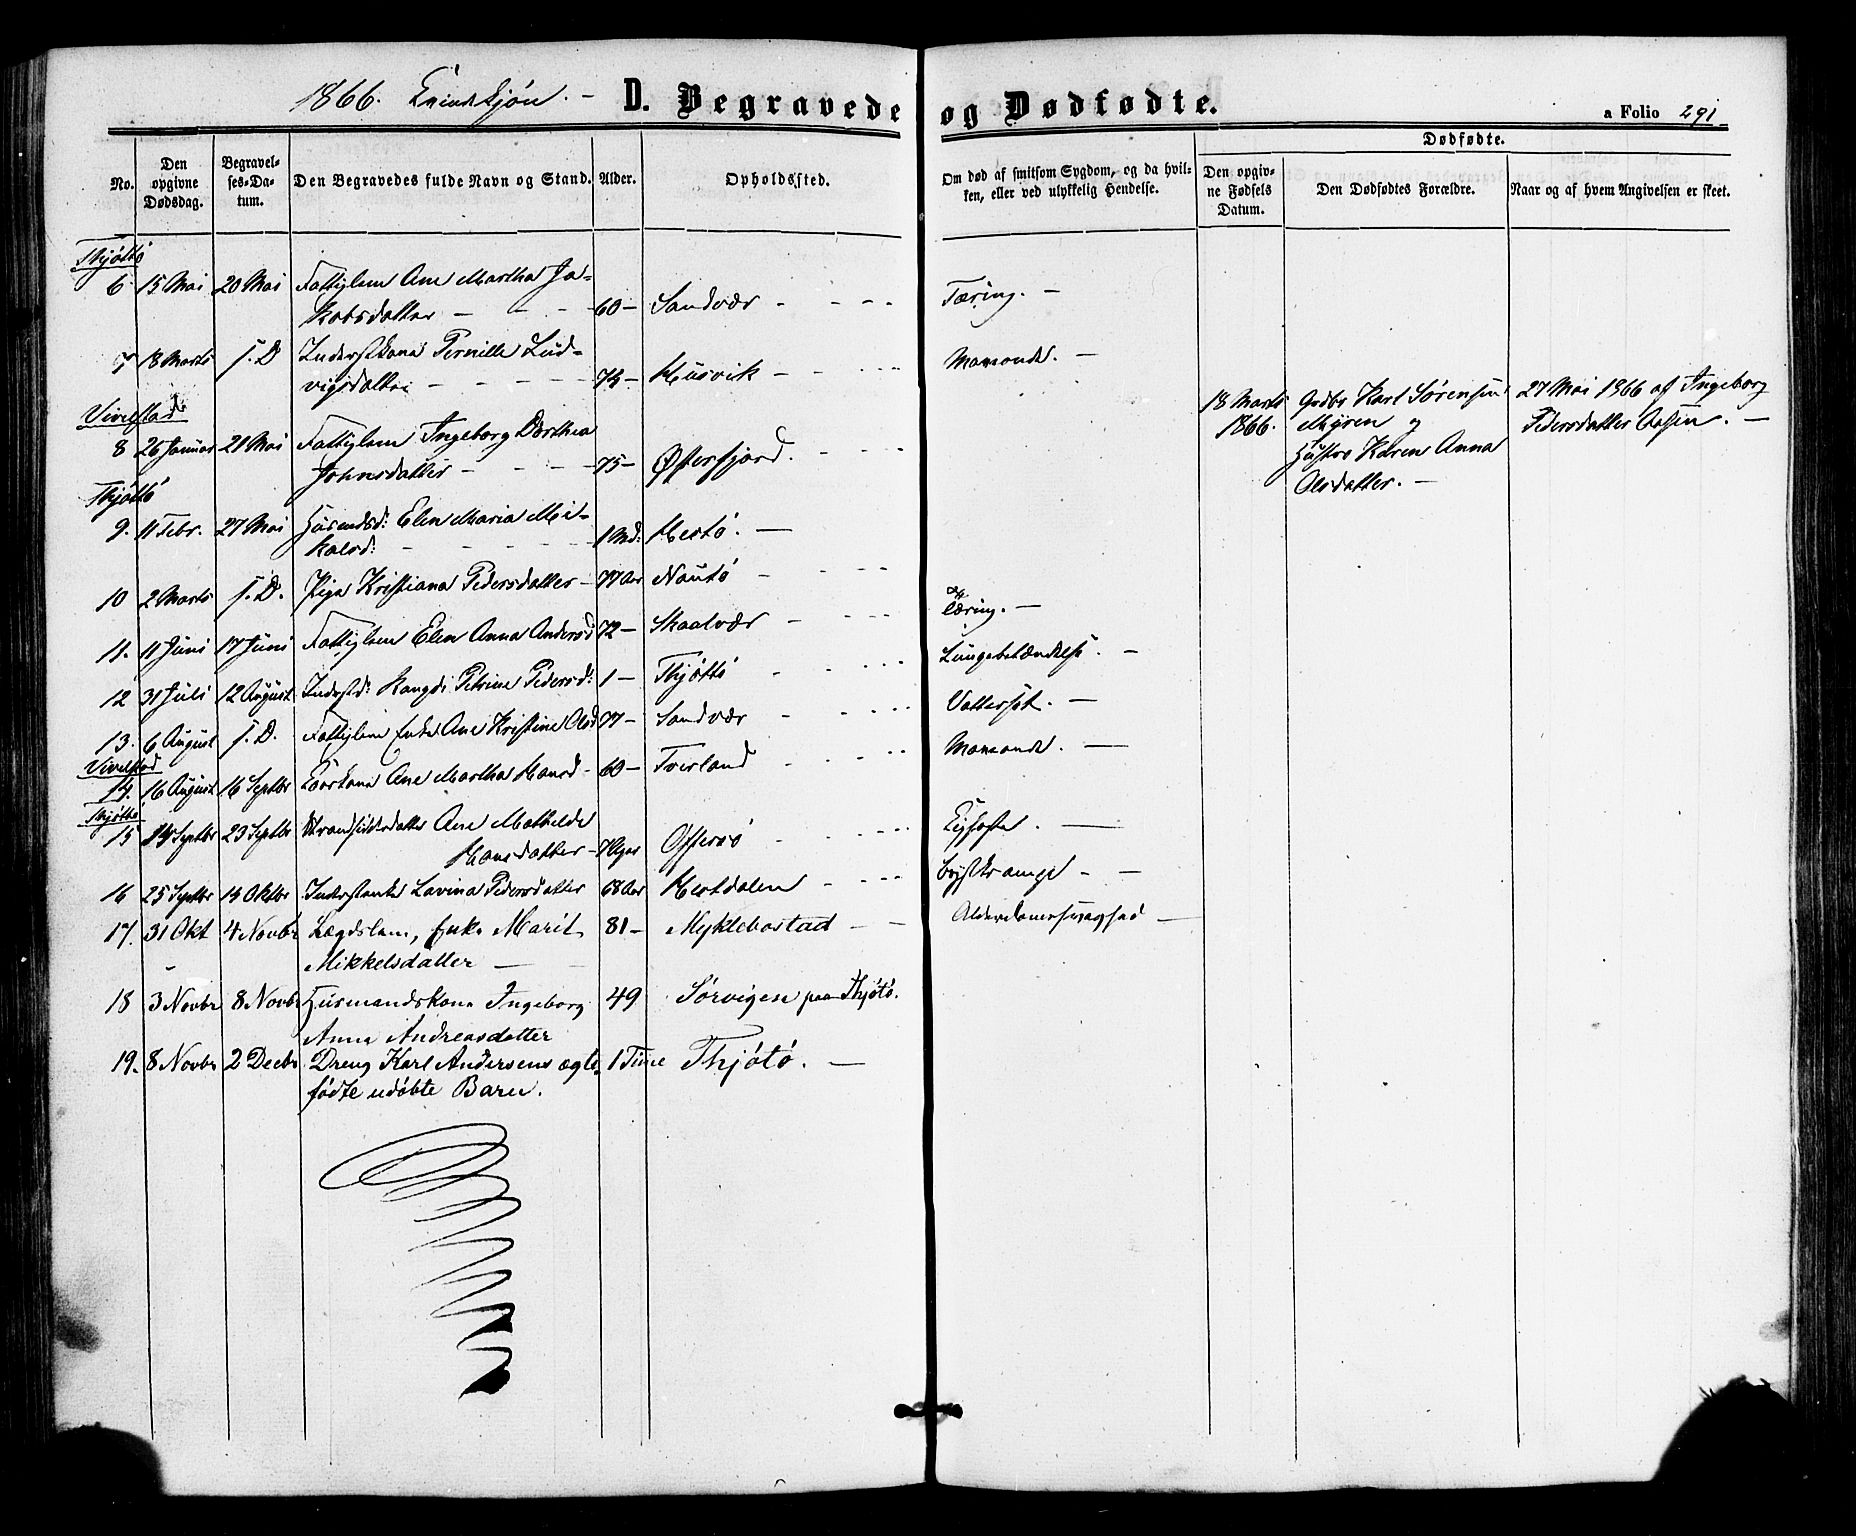 1866. Kvindekjøn. - D. Begravede og Dødfødte. a Folio 291
Dødfødte.
No.
Den opgivne Dødsdag.
Begravelses-Datum.
Den Begravedes fulde Navn og Stand.
Alder.
Opholdssted.
Om død af smitsom Sygdom, og da hvilken, eller ved ulykkelig Hendelse.
Den opgivne Fødsels Datum.
Den Dødfødtes Forældre.
Naar og af hvem Angivelsen er skeet.
Thjøttø
6 15 Mai 20 Mai Fattiglem Ane Martha Ja-
kobsdatter - - - 60 - Sandvær - - - - Tæring. -
7 18 Marts s. D Inderstkone Pernille Lud-
vigsdatter - - - - 74 - Husvik - - - - Marasme. -
18 Marts 1866. Karl Sørensen Myren og Hustro Karen Anna Olsdatter. -
27 Mai 1866 af Ingeborg Pedersdatter Aasen. -
Vivelstad
8 26 Januar 21 Mai Fattiglem Ingeborg Dorthea
Johnsdatter - - - 75 - Østerfjord. - - -
Thjøttø
9. 11 Febr. 27 Mai Husmdsd: Elen Maria Mi-
kalsd: - - - - 1 Md: Hestø. -
10 2 Marts s. D. Pige Kristiana Pedersdatter - 77 Aar Nautø - - - -
11. 11 Juni 17 Juni Fattiglem Elen Anna Andersd 72 - Skaalvær - - - - Tæring. -
12 31 Juli 12 August Inderstd: Petrine Pedersd: 1 - Thjøttø - - - - Lungebetændelse. -
13. 6 August s. D. Fattiglem Enke Ane Kristine Olsd 77 - Sandvær - - - - Vattersot. -
Vivelstad
14. 16 August 16 Septbr Ane Martha Hansd - 60 - Tverland - - - -
Thjøttø
15 14 Septbr 23 Septbr Strandsidderdatter Ane Mathilde
Hansdatter - 7 Offersø - - - -
16 25 Septbr 14 Oktbr Inderstenke Lavina Pedersdatter 68 Aar Hestdalen - - - - Brystkrampe - -
17. 31 Okt 4 Novbr Lægdslem, Enke Marit 81 - Myklebostad - - Alderdomssvaghed -
Mikkelsdatter -
18 3 Novbr 8 Novbr Husmandskone Ingeborg 49 Sørvigen paa Thjøtø.
Anna Andreasdatter
19. 8 Novbr 2 Decbr Dreng Karl Andersens ægte- 1 Time Thjøtø. -
fødte udøbte Barn.